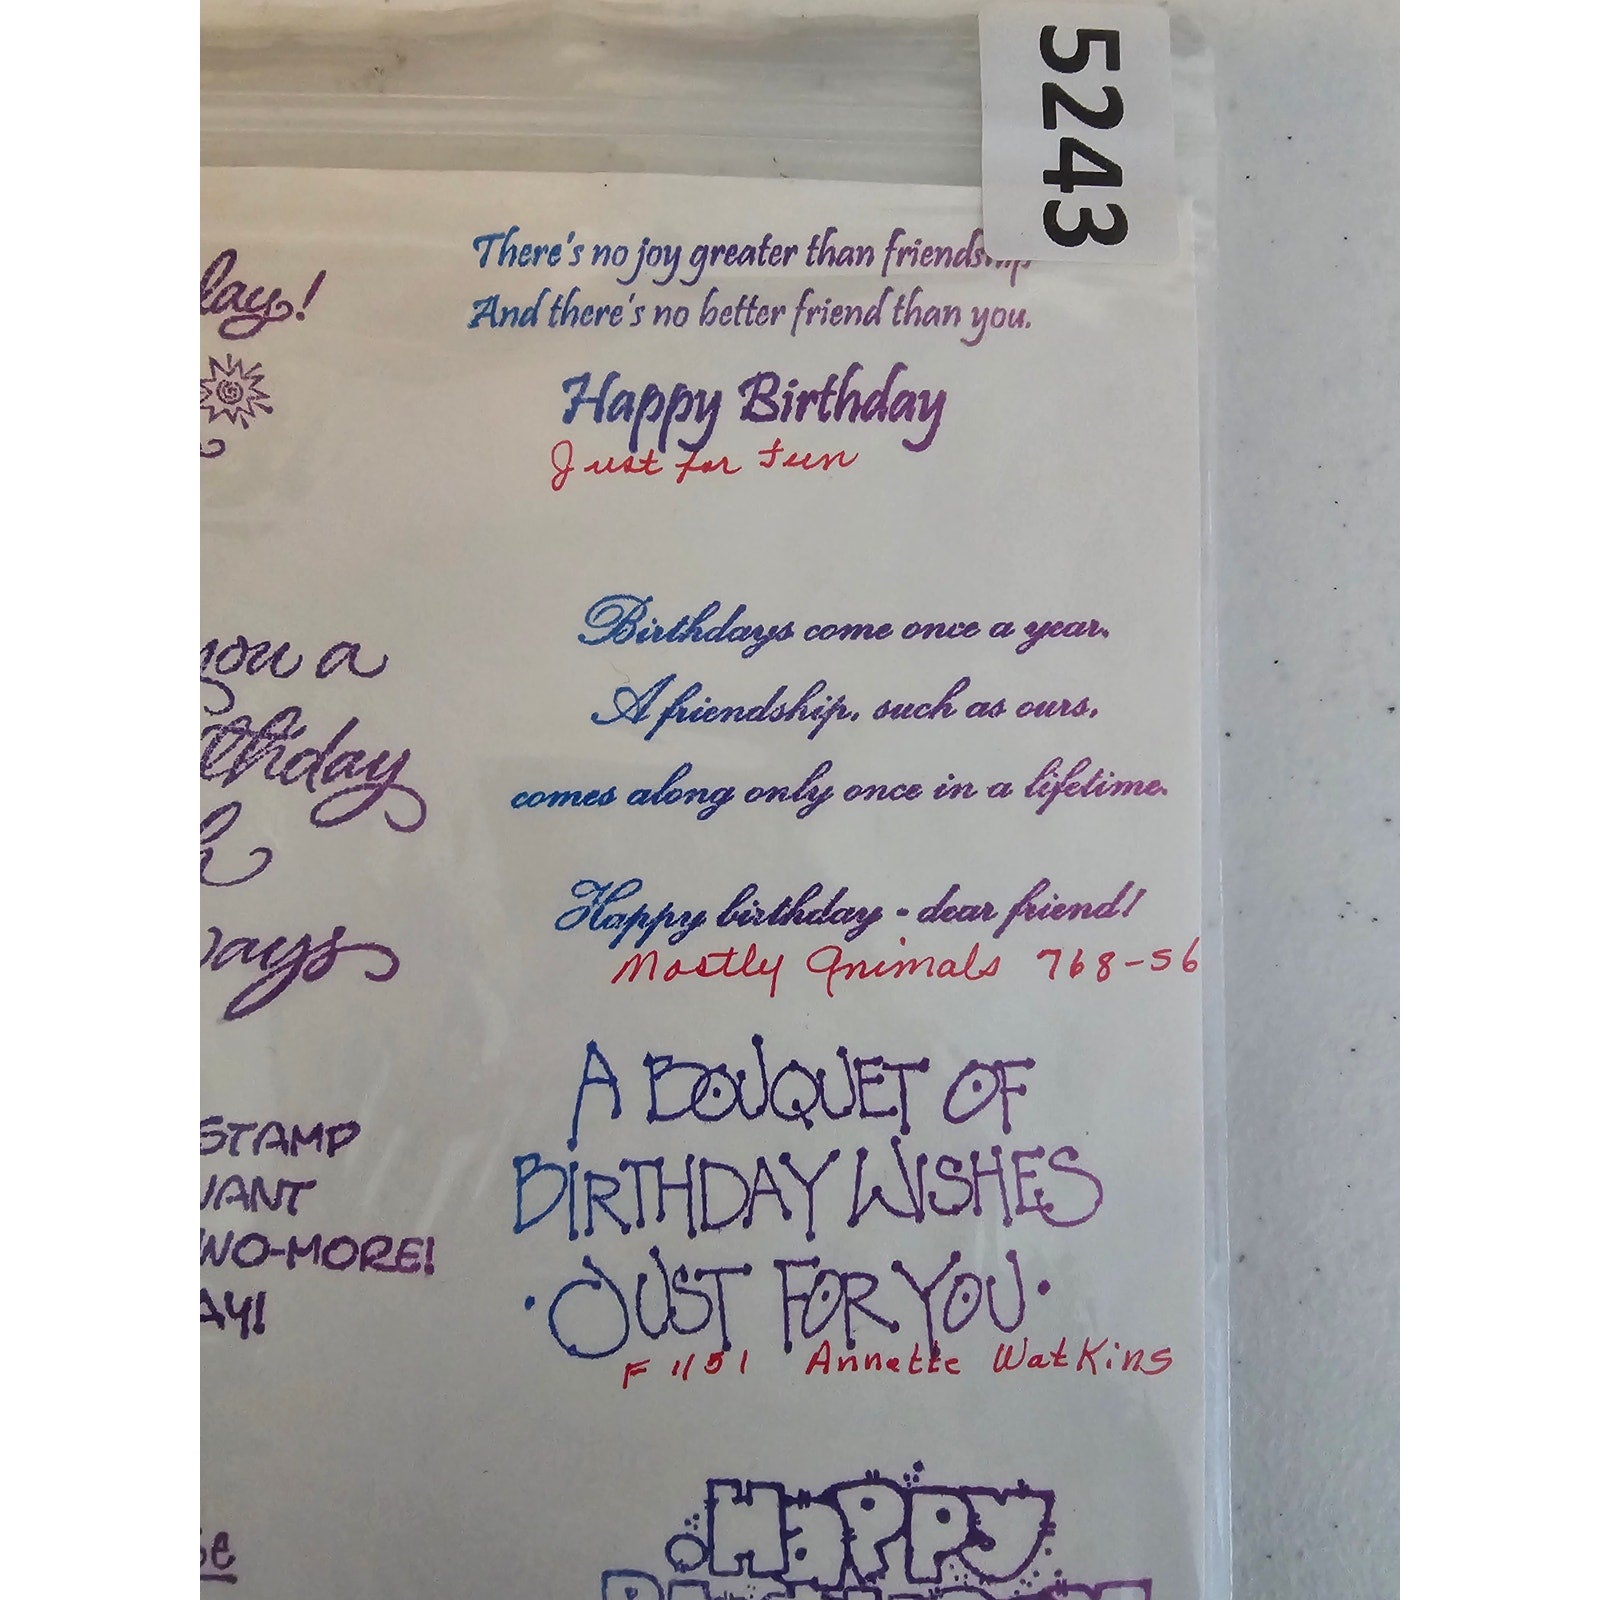 5243
There's no joy greater than
And there's no better friend than you.
Happy Birthday
Just for Fun
Birthdays come once a year.
A friendship, such as ours,
comes along only once in a lifetime.
Happy birthday - dear friend!
Mostly Animals 768-56
A BOUQUET OF
BIRTHDAY WISHES
·JUST FOR YOU·
F 1151 Annette Watkins
HAPPY
lay!
you a
thday
h
ays
STAMP
ANT
WO-MORE!
AY!